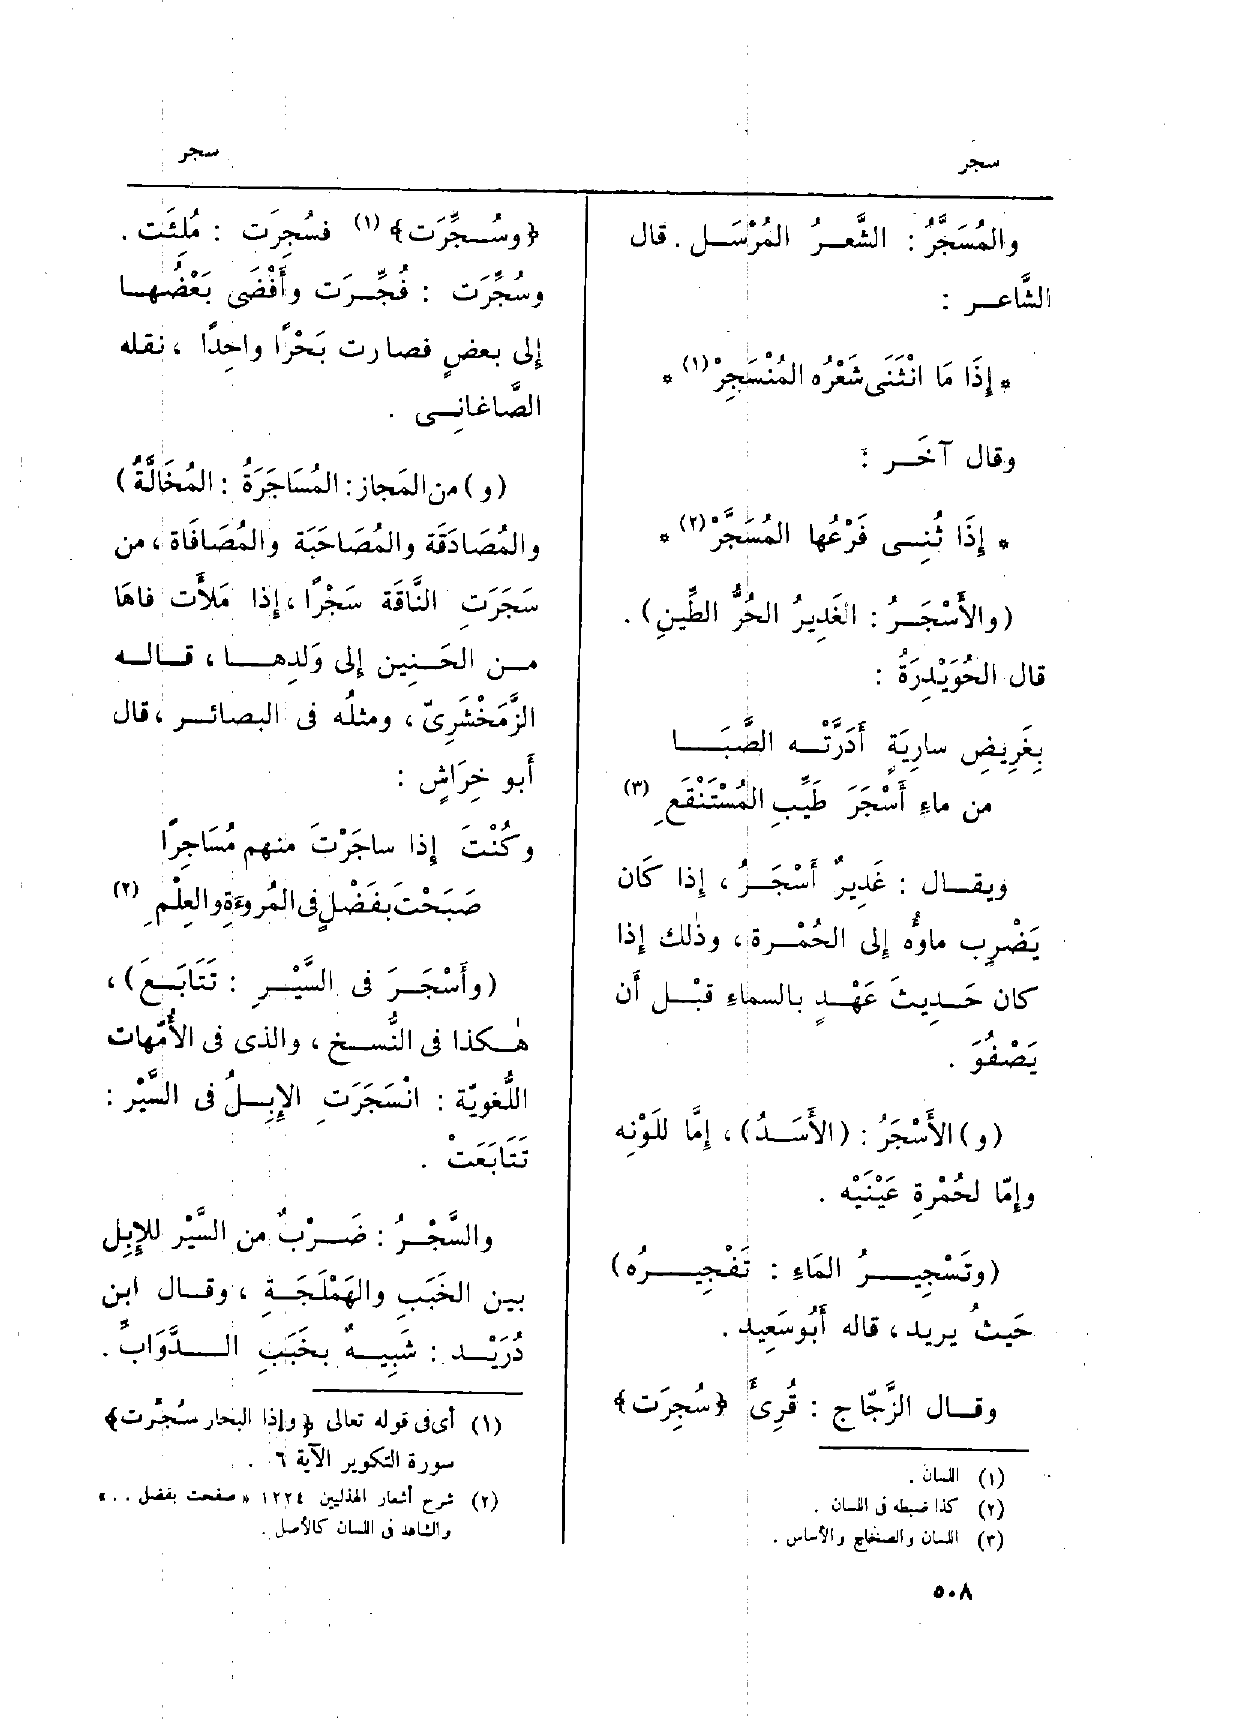 سجر
والمُسَجَّرُ : الشَّعرُ المُرْسَل . قال
الشَّاعر :
* إذَا مَا انْثَنَى شَعْرُه المُنْسَجِرْ(١) *
وقال آخَر :
* إِذَا ثُنِى فَرْعُها المُسَجَّرْ(٢) *
(والأَسْجَرُ : الغَدِيرُ الحُرُّ الطِّينِ) .
قال الحُوَيْدِرَةُ :
بِغَرِيضِ سارِيَةٍ أَدَرَّتْه الصَّبَا
من ماءِ أَسْجَرَ طَيِّبِ المُسْتَنْقَعِ (٣)
ويقال : غَدِيرٌ أَسْجَرُ ، إذا كان
يَضْرِب ماؤُه إلى الحُمْرة ، وذٰلك إذا
كان حَدِيثَ عَهْدٍ بالسماءِ قبْل أن
يَصْفُوَ .
(و) الأَسْجَرُ : (الأَسَدُ) ، إمَّا للَوْنِه
وإمّا لحُمْرةِ عَيْنَيْه .
(وتَسْجِيرُ المَاءِ : تَفْجِيرُه)
حَيثُ يريد ، قاله أَبُو سَعِيد .
وقال الزَّجّاج : قُرِئَ ﴿سُجِرَت﴾
(١) اللسان .
(٢) كذا ضبطه فى اللسان .
(٣) اللسان والصحاح والأساس .
سجر
﴿وسُجِّرَت﴾ (١) فسُجِرَت : مُلِئَت .
وسُجِّرَت : فُجِّرَت وأَفْضَى بَعْضُها
إلى بعضٍ فصارت بَحْرًا واحِدًا ، نقله
الصَّاغانِى .
(و) من المَجاز : المُسَاجَرَةُ : المُخَالَّةُ)
والمُصَادَقَة والمُصَاحَبَة والمُصَافَاة ، من
سَجَرَتِ النَّاقَة سَجْرًا ، إذا مَلأَت فاهَا
من الحَنِين إلى وَلَدِها ، قاله
الزَّمَخْشَرِىّ ، ومثلُه فى البصائر ، قال
أَبو خِرَاشٍ :
وكُنْتَ إذا ساجَرْتَ منهم مُسَاجِرًا
صَبَحْتَ بفَضْلٍ فى المُروءَةِ والعِلْمِ (٢)
(وأَسْجَرَ فى السَّيْرِ : تَتَابَعَ) ،
هٰكذا فى النُّسخ ، والذى فى الأُمّهات
اللُّغويّة : انْسَجَرَتِ الإبِلُ فى السَّيْر :
تَتَابَعَتْ .
والسَّجْرُ : ضَرْبٌ من السَّيْر للإِبِل
بين الخَبَبِ والهَمْلَجَةِ ، وقال ابن
دُرَيْد : شَبِيهٌ بخَبَبِ الدَّوَابِّ .
(١) أى فى قوله تعالى ﴿وإذا البحار سُجِّرت﴾
سورة التكوير الآية ٦ .
(٢) شرح أشعار الهذليين ١٢٢٤ « صفحت بفضل .. »
والشاهد فى اللسان كالأصل .
٥٠٨